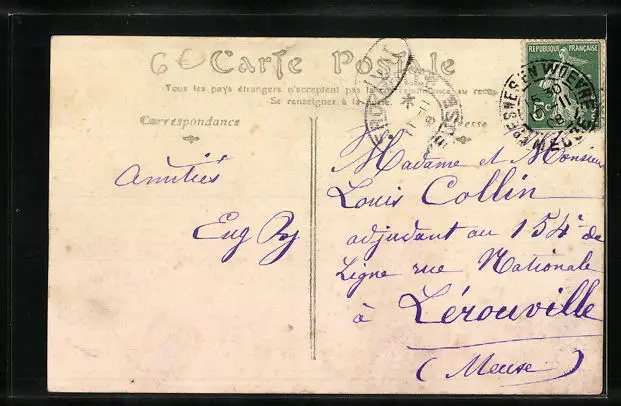 6€ Carte Postale
Tous les pays étrangers n'acceptent pas la correspondance au recto
Se renseigner à la
Correspondance
RÉPUBLIQUE FRANÇAISE
FRESNES-EN-WOËVRE
MEUSE
Amitiés
Eug
Madame et Monsieur
Louis Collin
adjudant au 154e de
Ligne rue Nationale
à Lérouville
(Meuse)